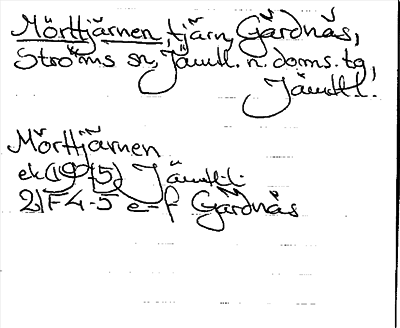 Mörttjärnen, tjärn, Gärdnäs,
Ströms sn, Jämtl. n. doms. tg,
Jämtl.l.
Mörttjärnen
ek (1915) Jämtl.l.
21F4-5 e-f Gärdnäs